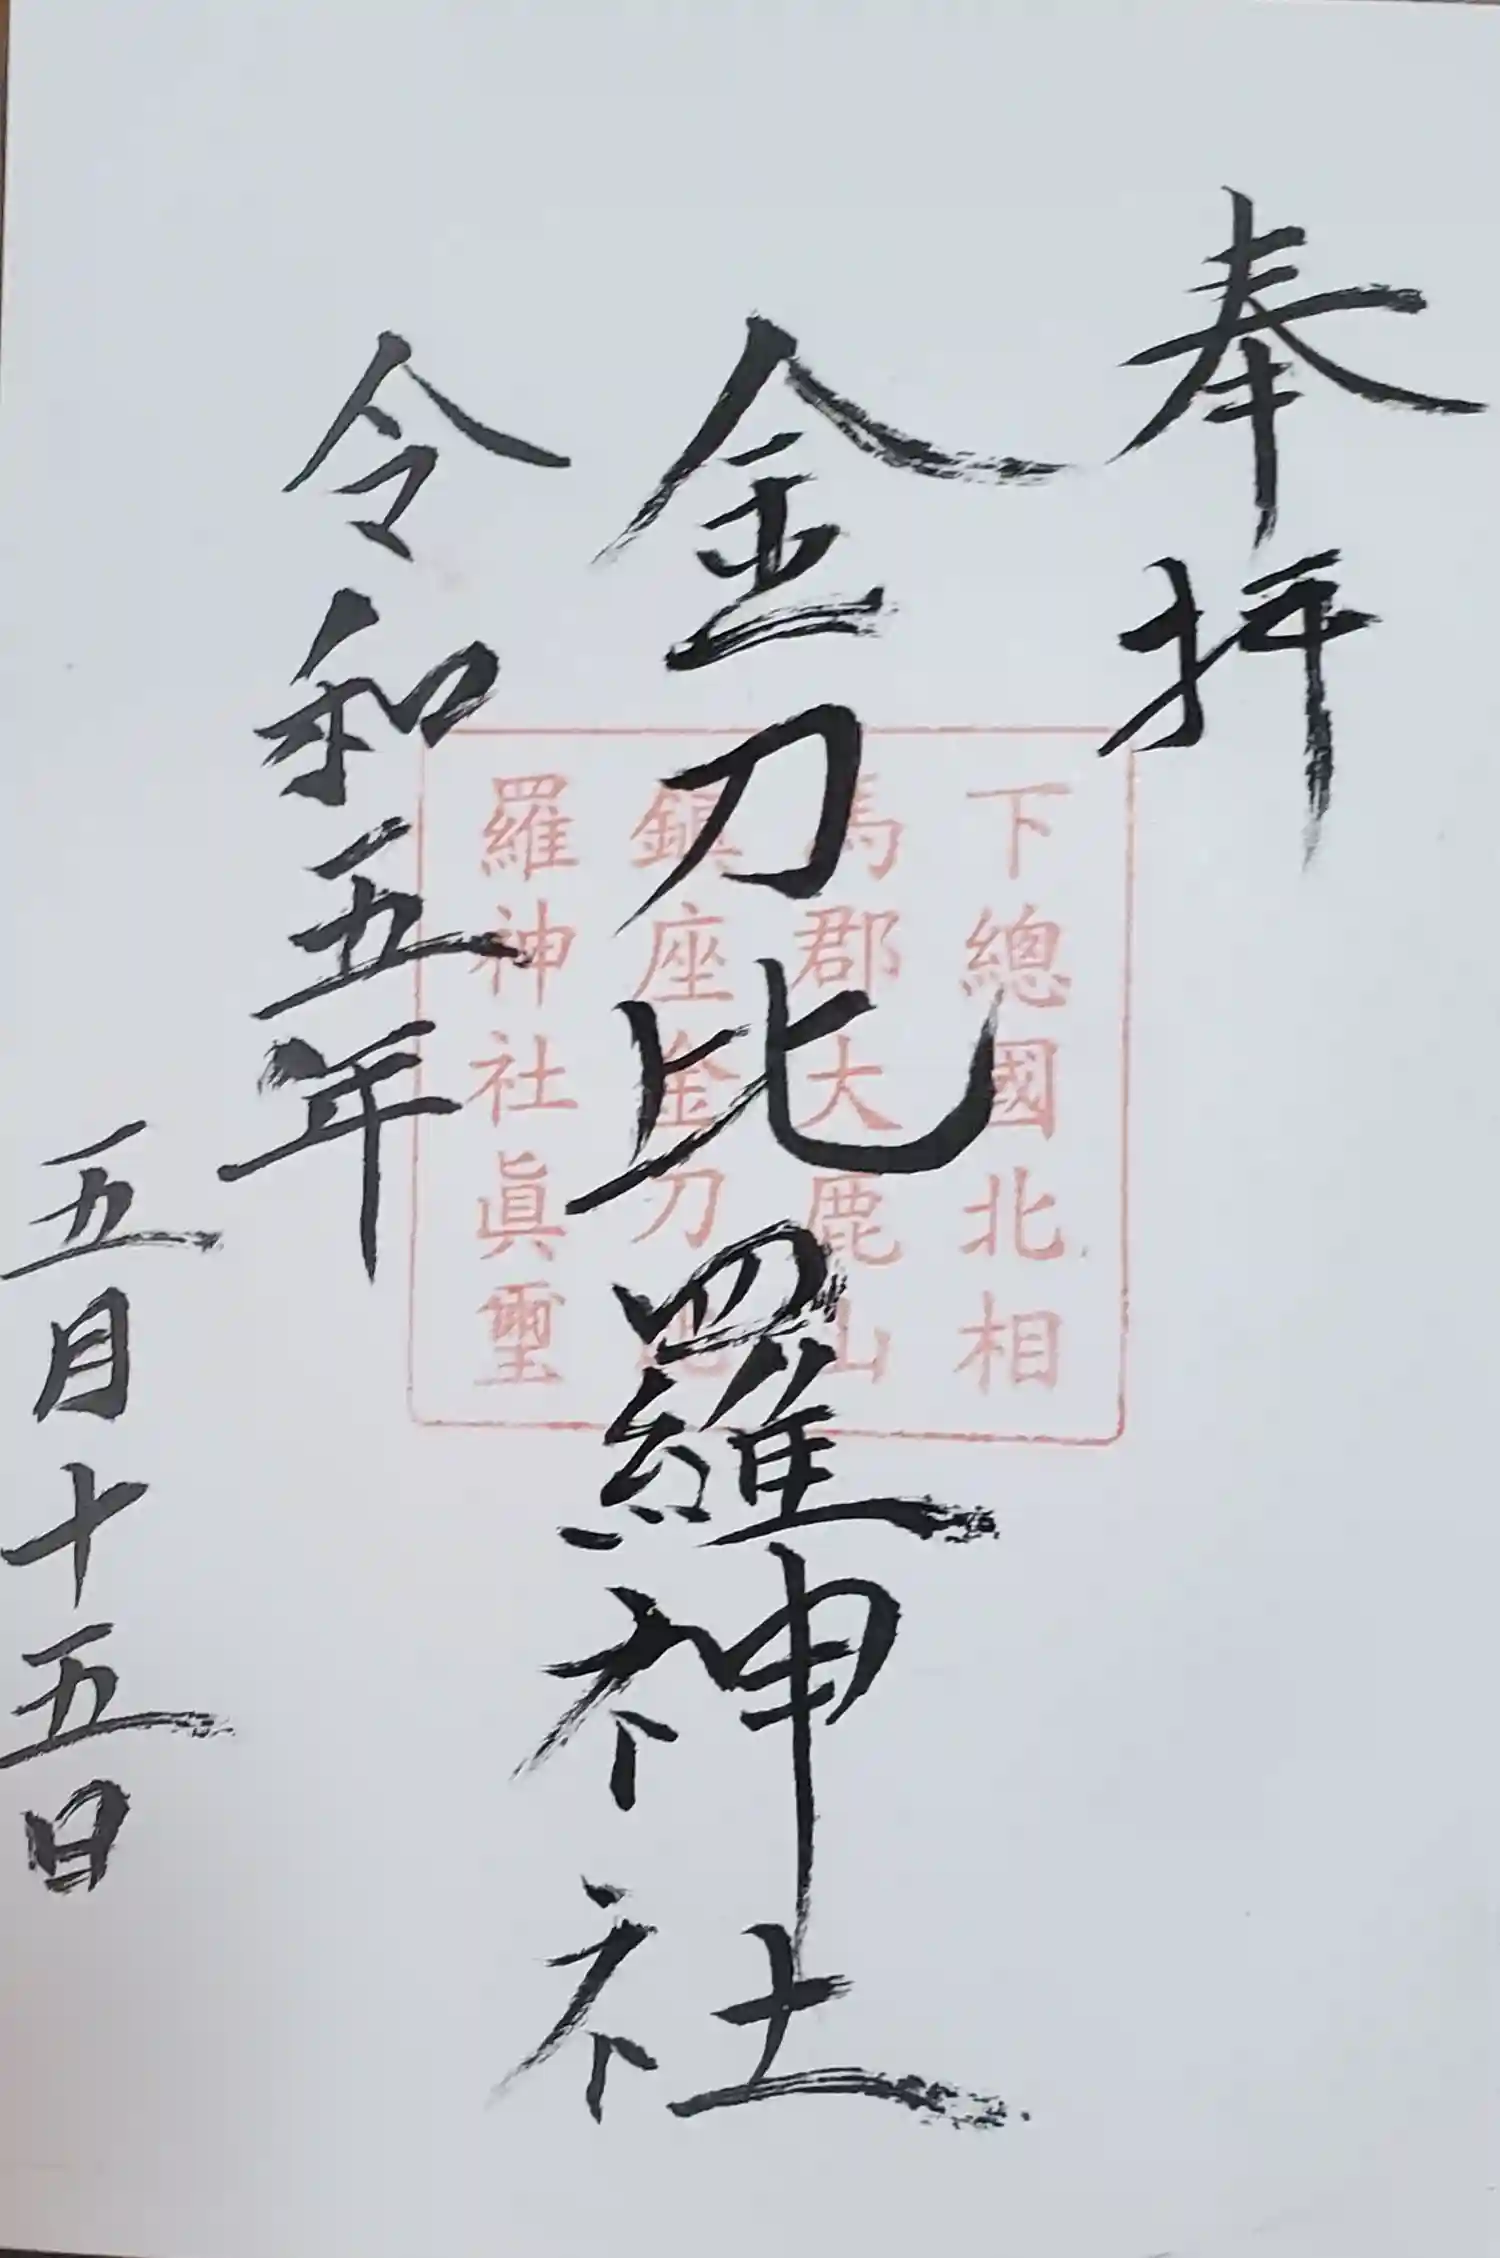 奉拝
金刀比羅神社
令和五年
五月十五日
下總國北相
馬郡大鹿山
鎮座金刀比
羅神社眞璽